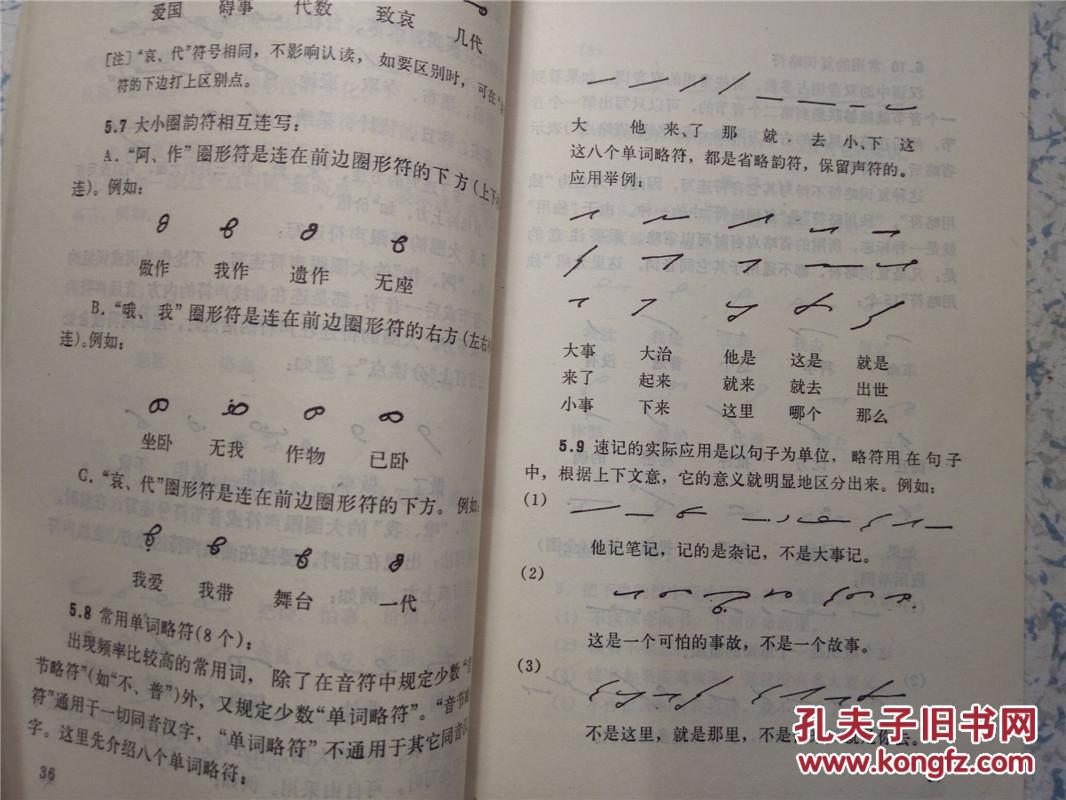 爱国 碍事 代数 致哀 几代
[注]“哀、代”符号相同，不影响认读，如要区别时，可在“
符的下边打上区别点。
5.7 大小圈韵符相互连写：
A.“阿、作”圈形符是连在前边圈形符的下方(上下
连)。例如：
做作 我作 遗作 无座
B.“哦、我”圈形符是连在前边圈形符的右方(左右
连)。例如：
坐卧 无我 作物 已卧
C.“哀、代”圈形符是连在前边圈形符的下方。例如：
我爱 我带 舞台 一代
5.8 常用单词略符(8个)：
出现频率比较高的常用词，除了在音符中规定少数“
节略符”(如“不、普”)外，又规定少数“单词略符”。“音节
符”通用于一切同音汉字，“单词略符”不通用于其它同音
字。这里先介绍八个单词略符：
36
大 他 来、了 那 就 去 小、下 这
这八个单词略符，都是省略韵符，保留声符的。
应用举例：
大事 大治 他是 这是 就是
来了 起来 就来 就去 出世
小事 下来 这里 哪个 那么
5.9 速记的实际应用是以句子为单位，略符用在句子
中，根据上下文意，它的意义就明显地区分出来。例如：
(1)
他记笔记，记的是杂记，不是大事记。
(2)
这是一个可怕的事故，不是一个故事。
(3)
不是这里，就是那里，不是
去。
孔夫子旧书网
www.kongfz.com